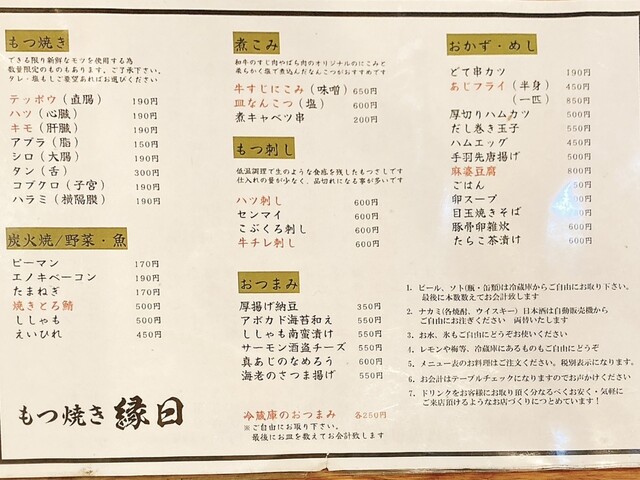 もつ焼き
できる限り新鮮なモツを使用する為
数量限定のものもあります。ご了承下さい。
タレ・塩もしご要望あればお選びください
テッポウ(直腸) 190円
ハツ(心臓) 190円
キモ(肝臓) 190円
アブラ(脂) 150円
シロ(大腸) 190円
タン(舌) 300円
コブクロ(子宮) 190円
ハラミ(横隔膜) 190円
炭火焼/野菜・魚
ピーマン 170円
エノキベーコン 190円
たまねぎ 170円
焼きとろ鯖 500円
ししゃも 500円
えいひれ 450円
もつ焼き 縁日
煮こみ
和牛のすじ肉やばら肉のオリジナルのにこみと
柔らかく塩で煮込んだなんこつがおすすめです
牛すじにこみ(味噌) 650円
皿なんこつ(塩) 600円
煮キャベツ串 200円
もつ刺し
低温調理で生のような食感を残したもつさしです
仕入れの量が少なく、品切れになる事が多いです
ハツ刺し 600円
センマイ 600円
こぶくろ刺し 600円
牛チレ刺し 600円
おつまみ
厚揚げ納豆 350円
アボカド海苔和え 550円
ししゃも南蛮漬け 550円
サーモン酒盗チーズ 550円
真あじのなめろう 600円
海老のさつま揚げ 550円
冷蔵庫のおつまみ 各250円
※ご自由にお取り下さい。
最後にお皿を数えてお会計致します
おかず・めし
どて串カツ 190円
あじフライ(半身) 450円
(一匹) 850円
厚切りハムカツ 500円
だし巻き玉子 550円
ハムエッグ 450円
手羽先唐揚げ 500円
麻婆豆腐 800円
ごはん
卵スープ
目玉焼きそば
豚骨卵雑炊
たらこ茶漬け
1. ビール、ソト(瓶・缶類)は冷蔵庫からご自由にお取り下さい。
最後に本数数えてお会計致します
2. ナカミ(各焼酎、ウイスキー)日本酒は自動販売機から
ご自由にお注ぎください 両替いたします
3. お水、氷もご自由にどうぞお使いください
4. レモンや梅等、冷蔵庫にあるものもご自由にどうぞ
5. メニュー表のお料理はご注文ください。税別表示になります。
6. お会計はテーブルチェックになりますのでお声かけください
7. ドリンクをお客様にお取り頂く分なるべくお安く・気軽に
ご来店頂けるようなお店づくりにつとめています!